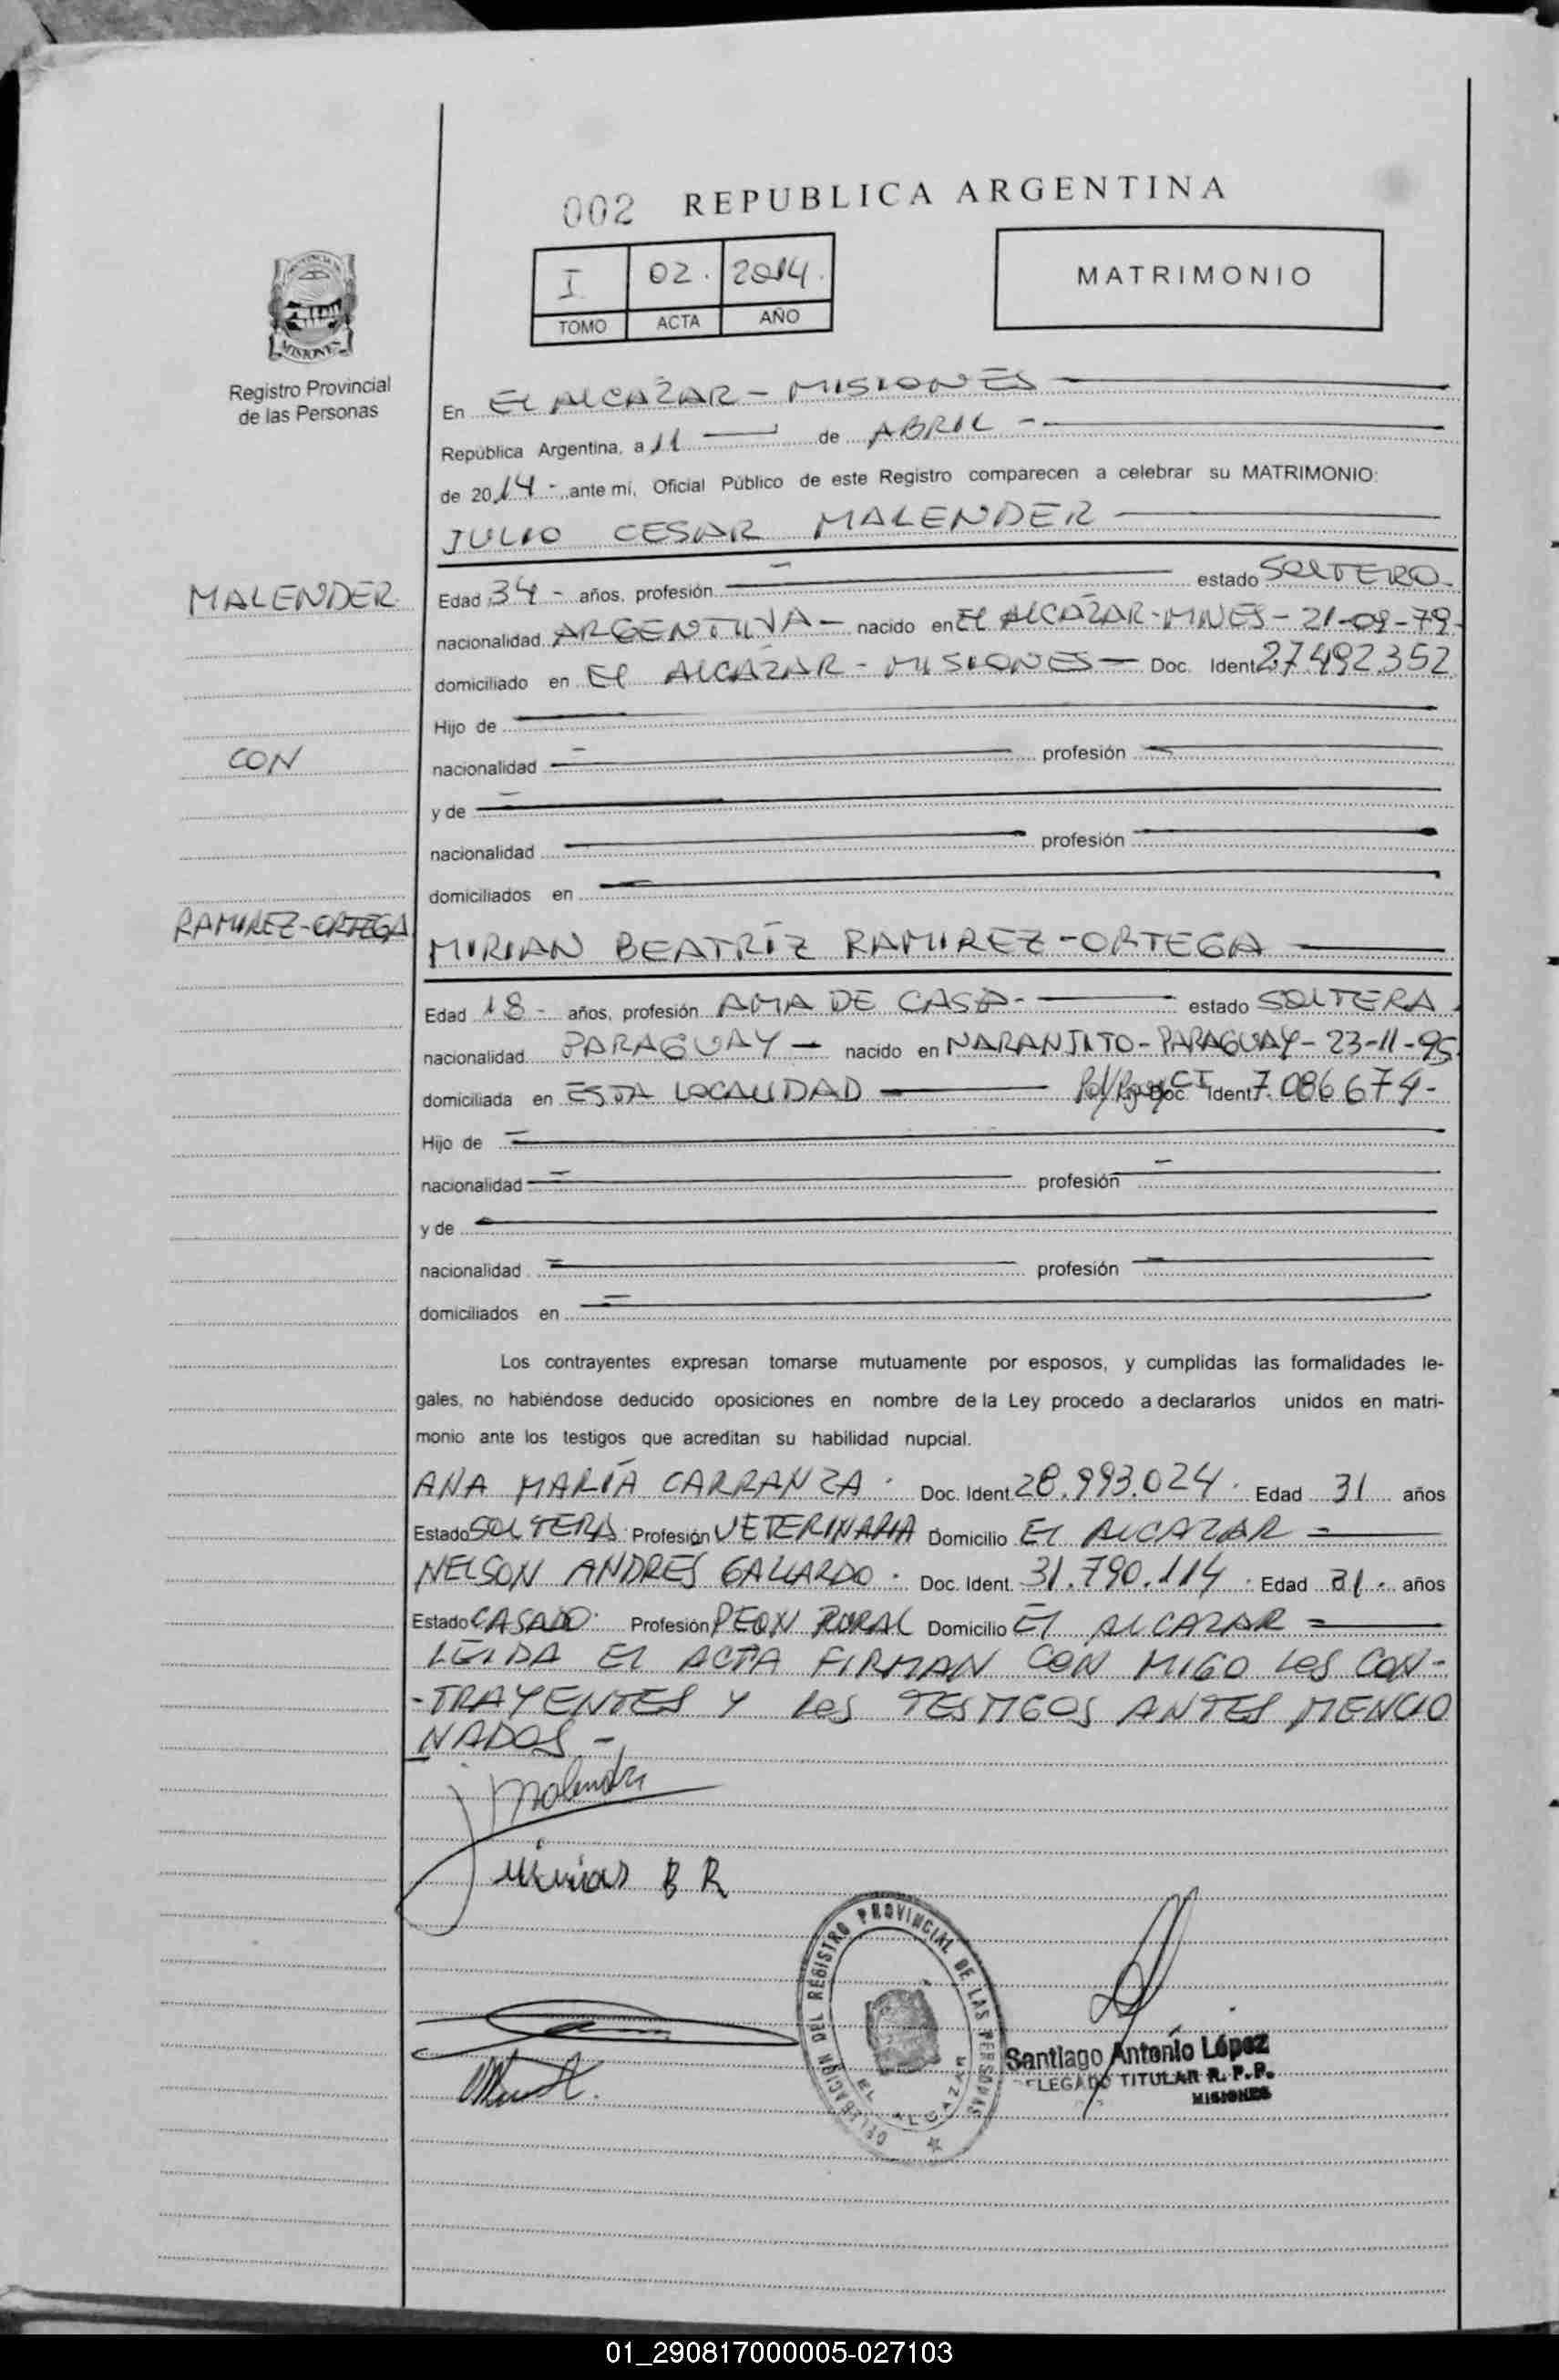 002 REPUBLICA ARGENTINA
I 02. 2014.
TOMO ACTA AÑO
MATRIMONIO
MISIONES
Registro Provincial
de las Personas
En EL ALCAZAR - MISIONES
República Argentina, a 11 de ABRIL -
de 2014 - ante mí, Oficial Público de este Registro comparecen a celebrar su MATRIMONIO:
JULIO CESAR MALENDER
MALENDER.
Edad 34 - años, profesión - estado SOLTERO.
nacionalidad ARGENTINA - nacido en El ALCAZAR - MNES - 21-09-79-
domiciliado en El ALCÁZAR - MISIONES - Doc. Ident 27.492.352
Hijo de
CON
nacionalidad - profesión -
y de -
nacionalidad profesión
domiciliados en -
RAMIREZ-ORTEGA
MIRIAN BEATRÍZ RAMIREZ-ORTEGA
Edad 18 - años, profesión AMA DE CASA - estado SOLTERA.
nacionalidad PARAGUAY - nacido en NARANJITO - PARAGUAY - 23-11-95
domiciliada en ESTA LOCALIDAD CI Doc. Ident 7.086.674-
Hijo de -
nacionalidad - profesión -
y de -
nacionalidad - profesión -
domiciliados en -
Los contrayentes expresan tomarse mutuamente por esposos, y cumplidas las formalidades le-
gales, no habiéndose deducido oposiciones en nombre de la Ley procedo a declararlos unidos en matri-
monio ante los testigos que acreditan su habilidad nupcial.
ANA MARÍA CARRANZA. Doc. Ident. 28.993.024. Edad 31 años
Estado SOLTERA. Profesión VETERINARIA Domicilio El ALCAZAR =
NELSON ANDRES GALLARDO. Doc. Ident. 31.790.114. Edad 31. años
Estado CASADO. Profesión PEON RURAL Domicilio El ALCAZAR =
LEIDA El ACTA FIRMAN CON MIGO LOS CON-
-TRAYENTES Y LOS TESTIGOS ANTES MENCIO
NADOS -
J Malender
Mirian B R
DELEGACION DEL REGISTRO PROVINCIAL DE LAS PERSONAS
EL ALCAZAR
Santiago Antonio López
DELEGADO TITULAR R. P. P.
MISIONES
01_290817000005-027103